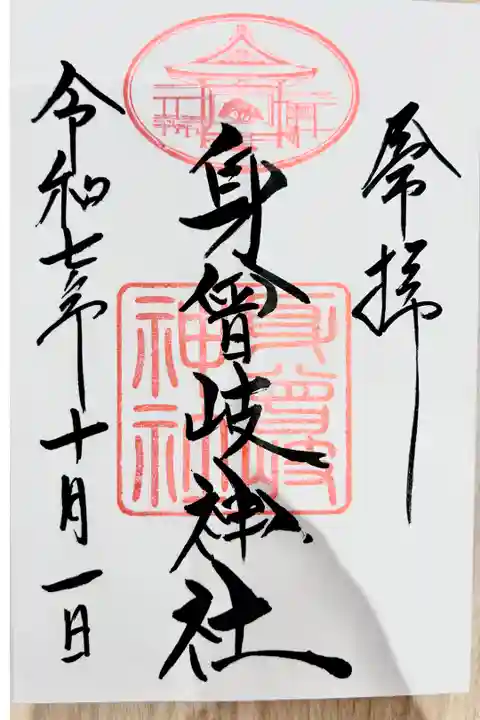 奉拝
身曾岐神社
身曾岐神社
令和七年十月一日